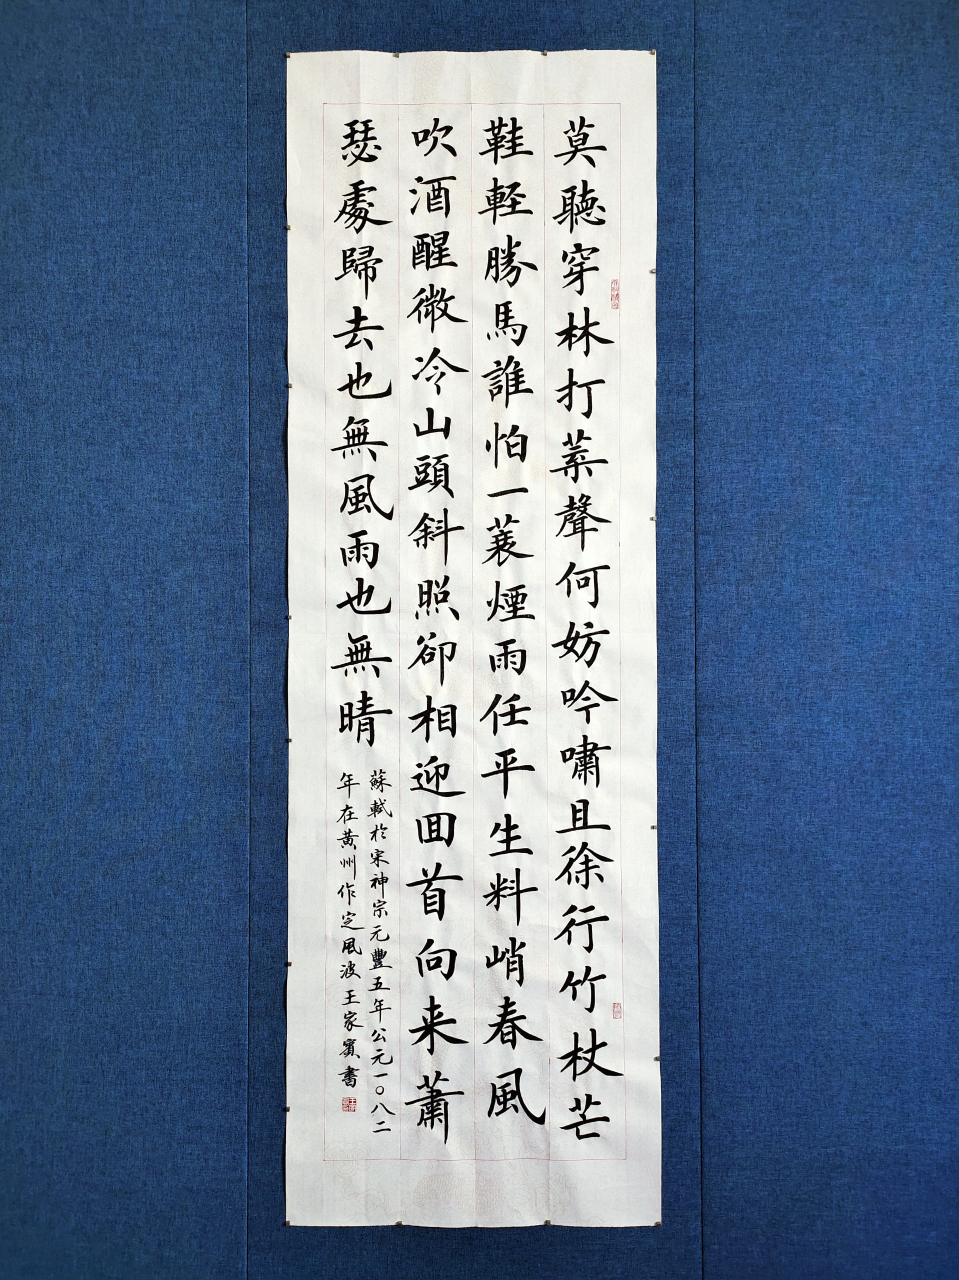 莫聴穿林打葉聲何妨吟嘯且徐行竹杖芒
鞋軽勝馬誰怕一蓑煙雨任平生料峭春風
吹酒醒微冷山頭斜照卻相迎回首向来蕭
瑟處歸去也無風雨也無晴
蘇軾於宋神宗元豐五年公元一〇八二
年在黃州作定風波王家賓書